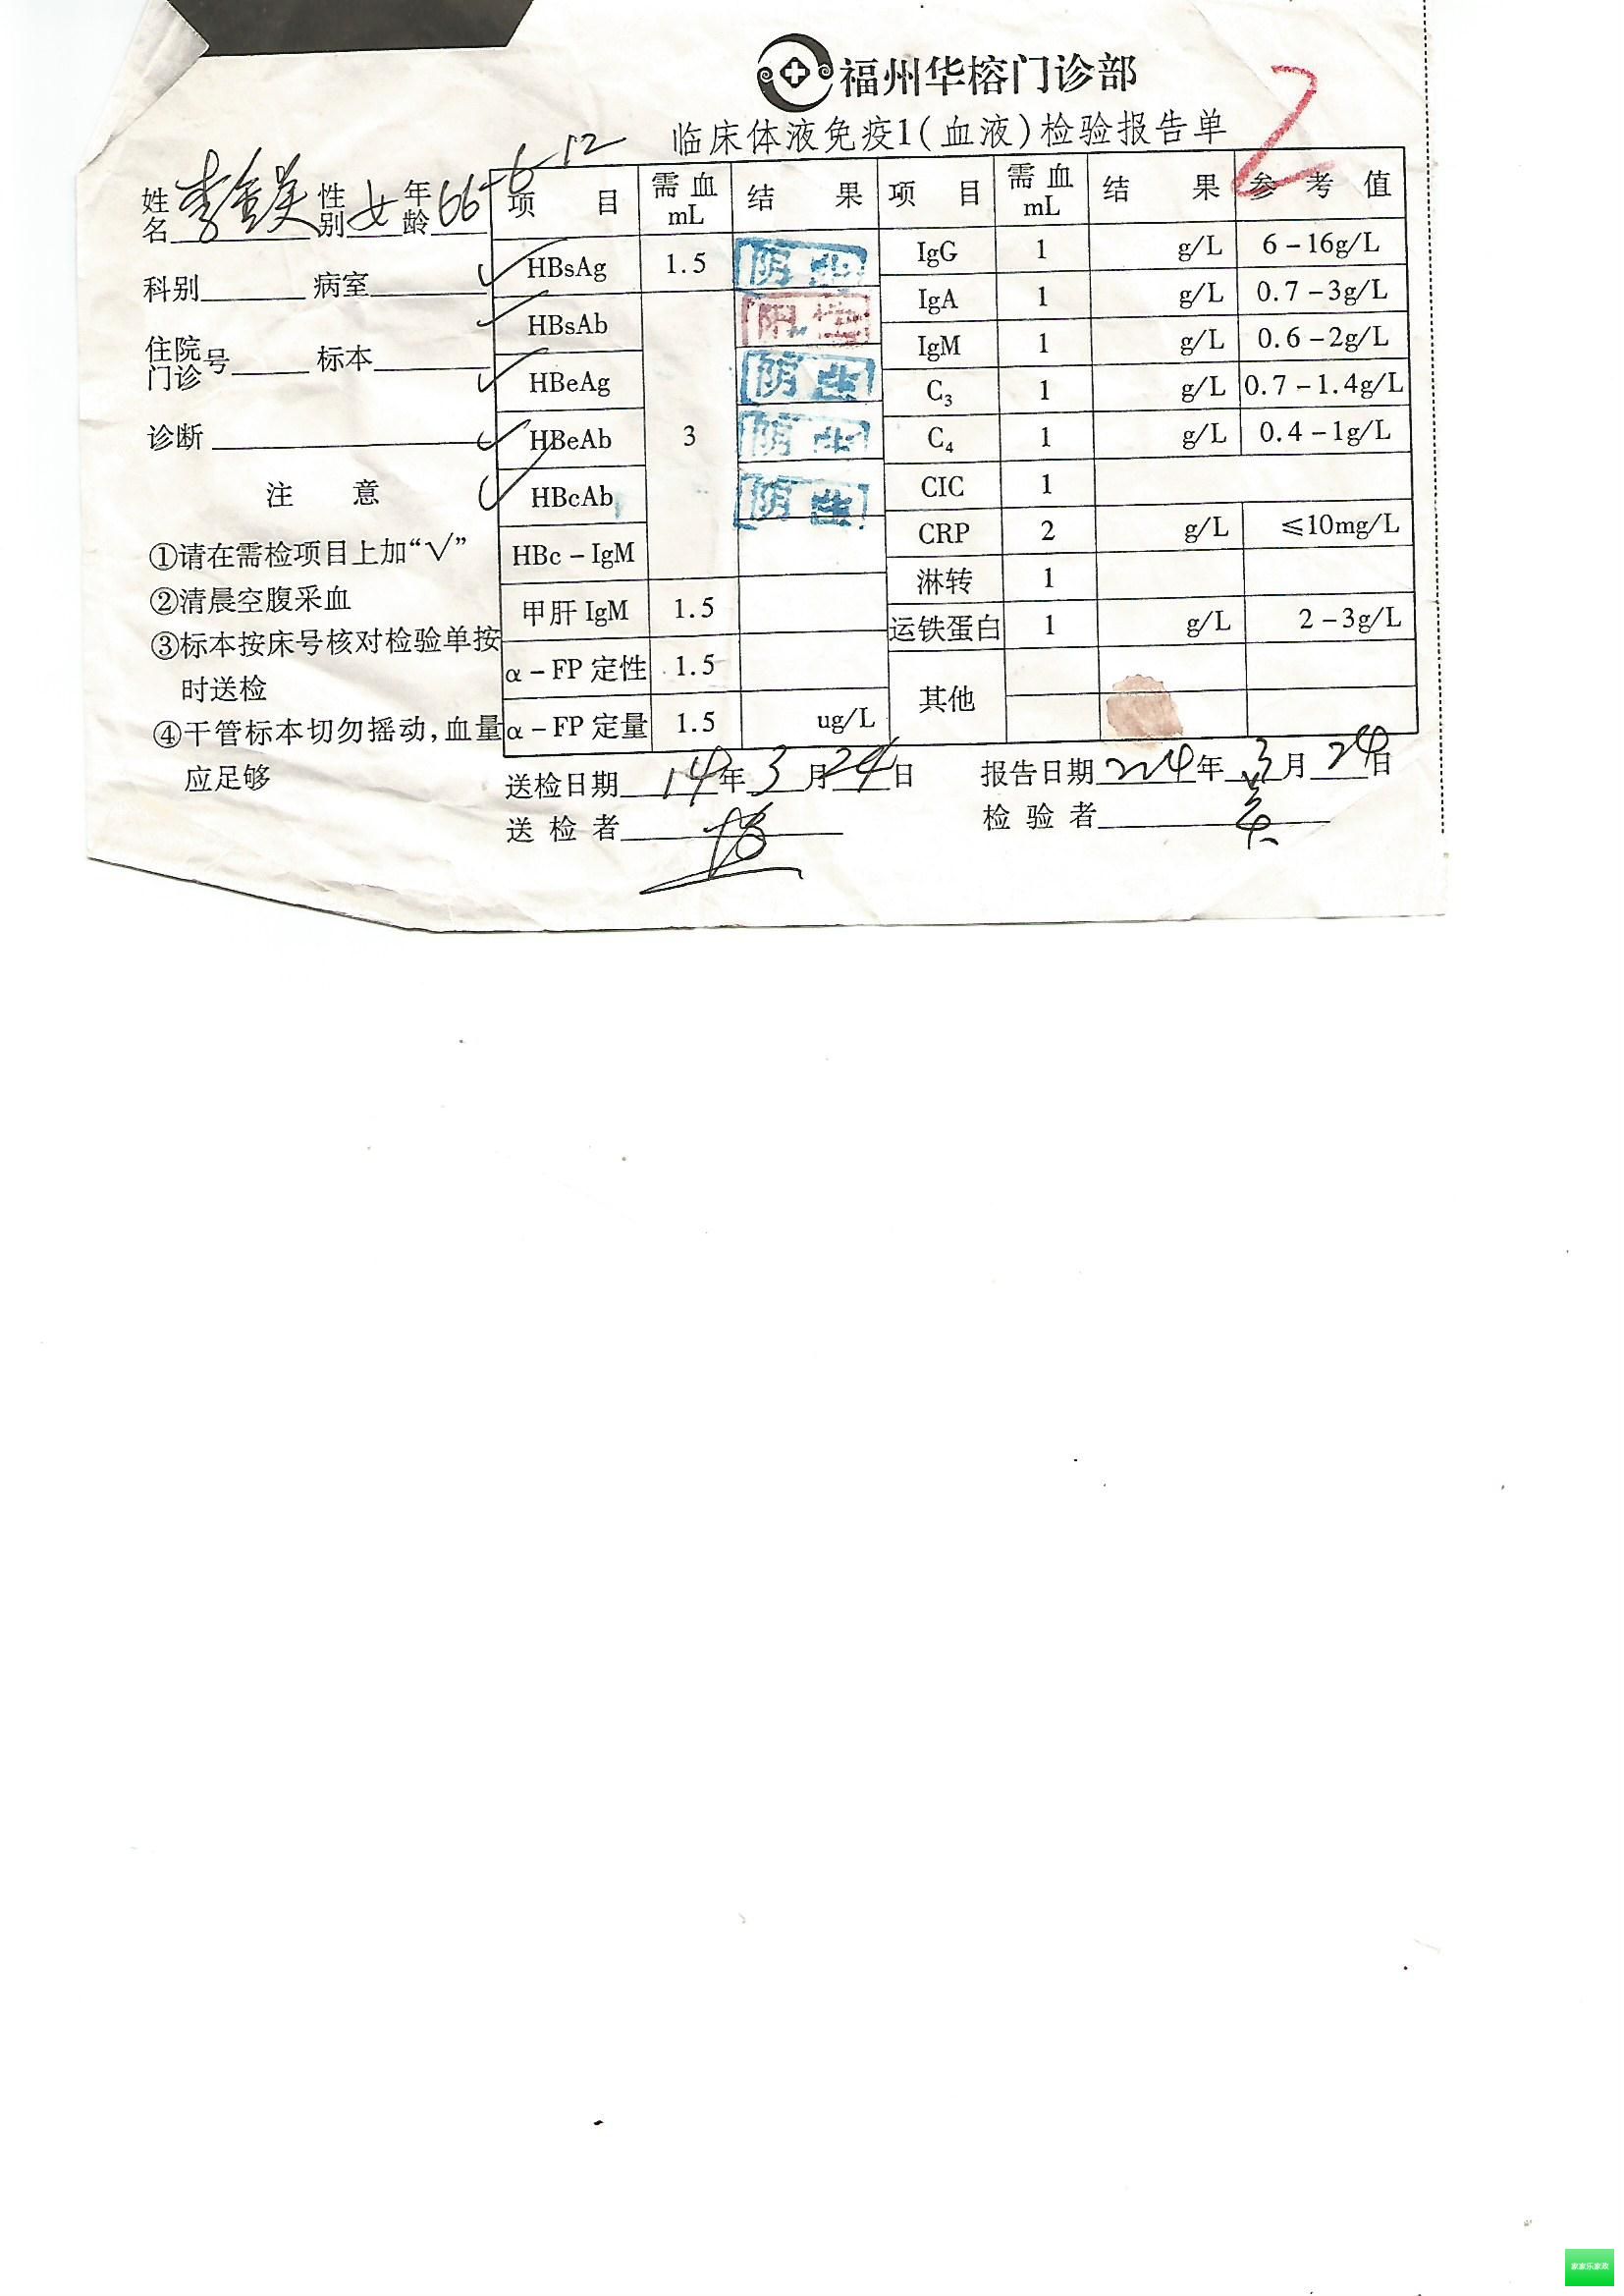 福州华榕门诊部
临床体液免疫1(血液)检验报告单
2
姓名 李金美 性别 女 年龄 66-6-12
科别 病室
住院门诊号 标本
诊断
注 意
①请在需检项目上加“√”
②清晨空腹采血
③标本按床号核对检验单按
时送检
④干管标本切勿摇动,血量
应足够
项 目 需血mL 结 果 项 目 需血mL 结 果 参 考 值
√ HBsAg 1.5 阴性 IgG 1 g/L 6-16g/L
√ HBsAb 阳性 IgA 1 g/L 0.7-3g/L
√ HBeAg 阴性 IgM 1 g/L 0.6-2g/L
C3 1 g/L 0.7-1.4g/L
√ HBeAb 3 阴性 C4 1 g/L 0.4-1g/L
√ HBcAb 阴性 CIC 1
HBc-IgM CRP 2 g/L ≤10mg/L
甲肝 IgM 1.5 淋转 1
运铁蛋白 1 g/L 2-3g/L
α-FP 定性 1.5 其他
α-FP 定量 1.5 ug/L
送检日期 14年3月24日 报告日期 年3月24日
送 检 者 检 验 者
家家乐家政